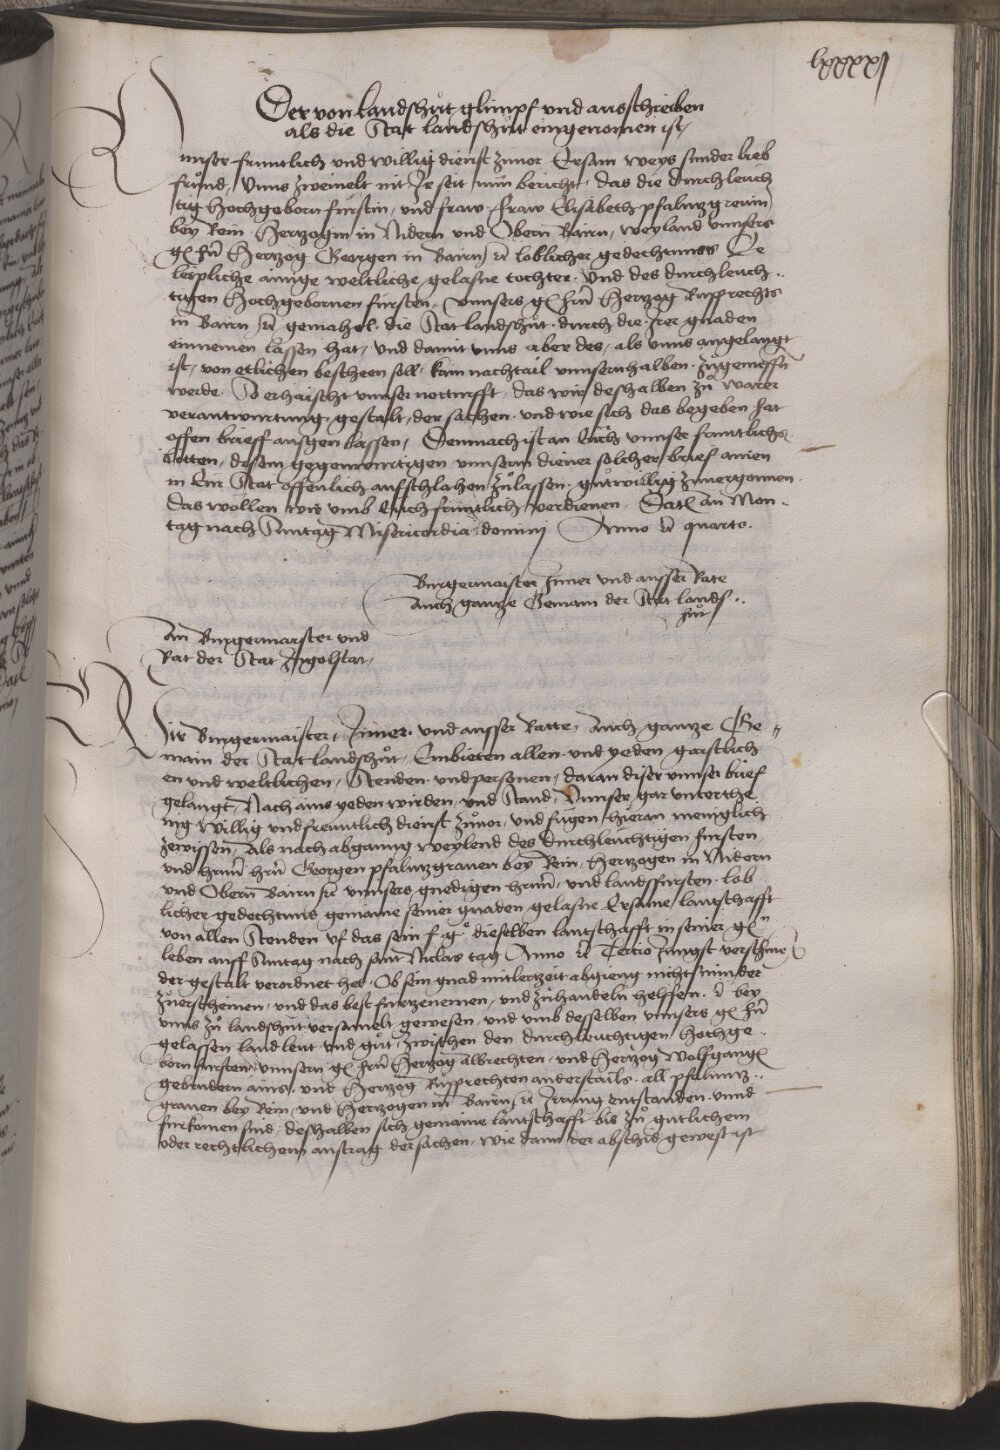 lxxxxj
Der von Landshůt glimpf und ausschreiben
als die Stat Landshůt eingenomen ist
Unser fruntlich und willig dienst zuuor Ersam weys sunder lieb
frund, Vnns zweiuelt nit Ir seit nun bericht, das die durchleuch
tig hochgeborn furstin, und fraw, fraw Elisabeth pfalnntzgreuin
bey Rein Hertzogin in Nidern und Obern Bairn, weyland vnnsers
gn hrn Hertzog Georgen in Bairn etc loblicher gedechtnuss Ee
leipliche ainige weltliche gelasne tochter. Und des durchleuch
tigen Hochgebornen fursten, vnnsers gn hrn Hertzog Rupprechts
in Bairn etc gemahel. die Stat Landshůt. durch die Irer gnaden
einnemen lassen hat, und damit vnns aber des, als vnns angelangt
ist, von etlichen bescheen soll, kain nachtail vnnsernhalben. zugemessen
werde. Erhaischt vnnser notturfft, das wir deshalben zů warer
verantwurtung, gestalt, der sachen. und wie sich das begeben hat
offen brieff ausgen lassen, Demnach ist an Euch vnnser fruntlichs
bitten, disem gegenwurtigen vnnserm diener solcher brief ainen
in Ewr Stat offenlich aufschlahen zůlassen. gůtwillig zuuergonnen.
das wöllen wir umb Euch fruntlich verdienen. Dat an Mon
tag nach Sunntag Misericordia domini Anno etc quarto.
Burgermaister Inner und ausser Rate
Auch gantze Gemain der Stat Lands
hůt
An Burgermaister und
Rat der Stat Ingolstat,
Wir Burgermaister, Inner. und ausser Ratte, Auch gantze Ge
main der Stat Landshůt, Embieten allen. und yeden gaistlich
en und weltlichen, Stenden. und personen, daran diser vnnser brief
gelangt, Nach ains yeden wirden, und Stand, Vnnser, gar unterthe
nig willig und freuntlich dienst zůuor, und fügen hieran meniglich
zewissen, Als nach abganng weylend des Durchleuchtigen fursten
und hrnn hrn Georgen pfalnntzgrauen bey Rein, Hertzogen in Nidern
und Obern Bairn etc vnnsers gnedigen hrnn, und landsfursten. Lob
licher gedechtnus gemaine seiner gnaden gelasne Ersame lantschafft
von allen Stenden uf das sein f. g. dieselben lantschafft in seiner gn
leben auff Suntag nach sant Niclas tag Anno etc Tercio Jungst verschine
der gestalt verordnet het. Ob sein gnad mitlerzeit abgieng nichtsminder
zůerscheinen, und das best furzenemen, und zůhandeln helffen. etc bey
vnns zů landshůt versamelt gewesen, und umb desselben vnnsers gn hrn
gelassen land leut und gůt, zwischen den durchleuchtigen, Hochge
born fursten, vnnsern gn hrn Hertzog Albrechten, und Hertzog Wolfgangen
gebrudern ains. und Hertzog Rupprechten anderstails. all pfalnntz
grauen bey Rein, und Hertzogen in Bairn etc Irrung entstanden. unnd
furkomen sind, deshalben sich gemaine lantschafft bis zů gutlichem
oder rechtlichem austrag der sachen, wie dann der abschid gewest ist